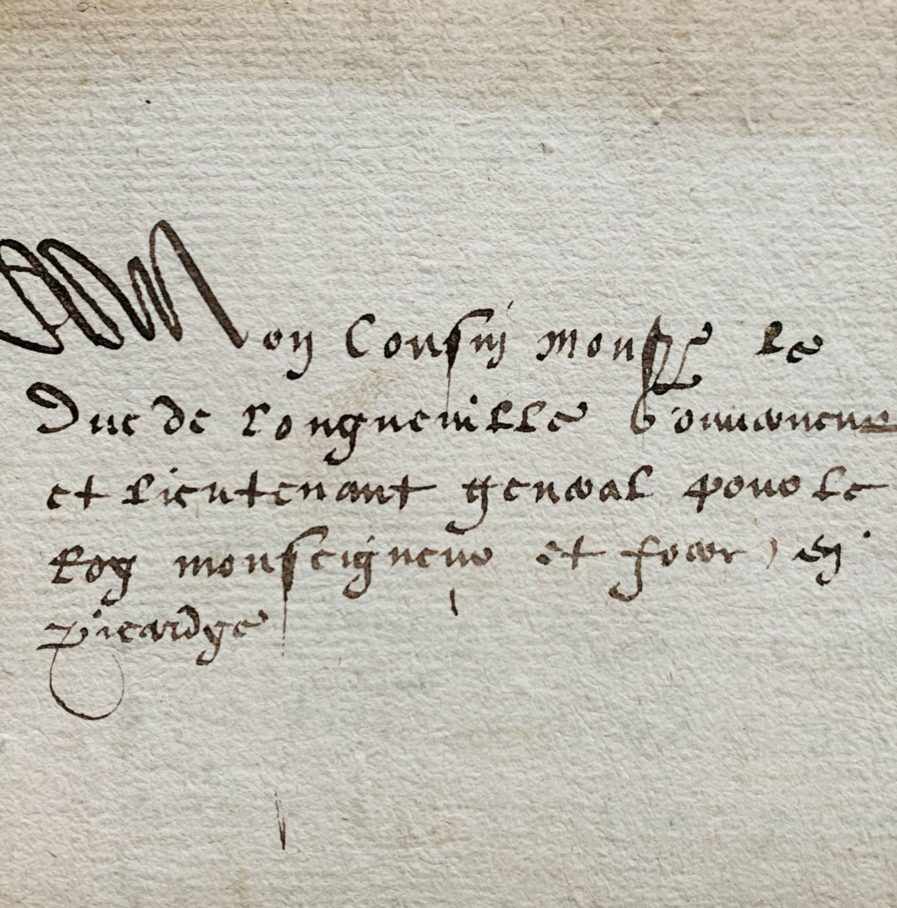 Mon Cousin monsr le
Duc de Longueville Gouverneur
et Lieutenant general pour le
Roy monseigneur et frere, en
picardye